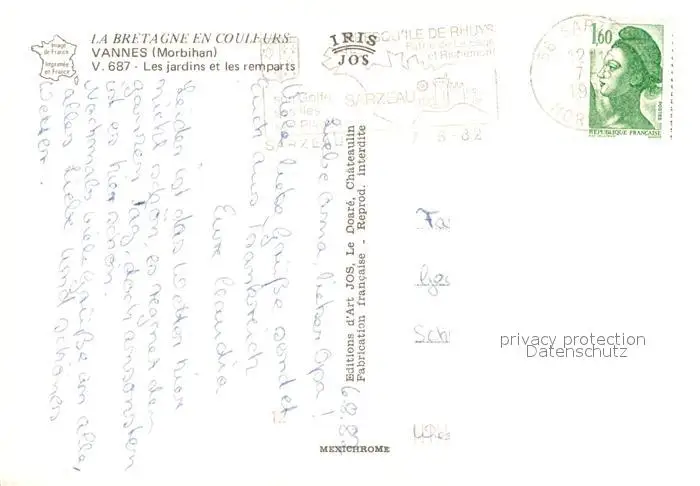 LA BRETAGNE EN COULEURS
VANNES (Morbihan)
V. 687 - Les jardins et les remparts
Image de France
Imprimée en France
IRIS
JOS
PRESQU'ILE DE RHUYS
SARZEAU
1,60
POSTES
REPUBLIQUE FRANÇAISE
6.8.82
Liebe Oma, lieber Opa!
Viele liebe Grüße sendet
Euch aus Frankreich
Eure Claudia
Leider ist das Wetter hier
nicht schön, es regnet den
ganzen Tag, doch ansonsten
ist es hier schön.
Nochmals viele Grüße an alle,
alles Liebe und schönes
Wetter.
Editions d'Art JOS, Le Doaré, Châteaulin
Fabrication française - Reprod. interdite
MEXICHROME
Sch
privacy protection
Datenschutz